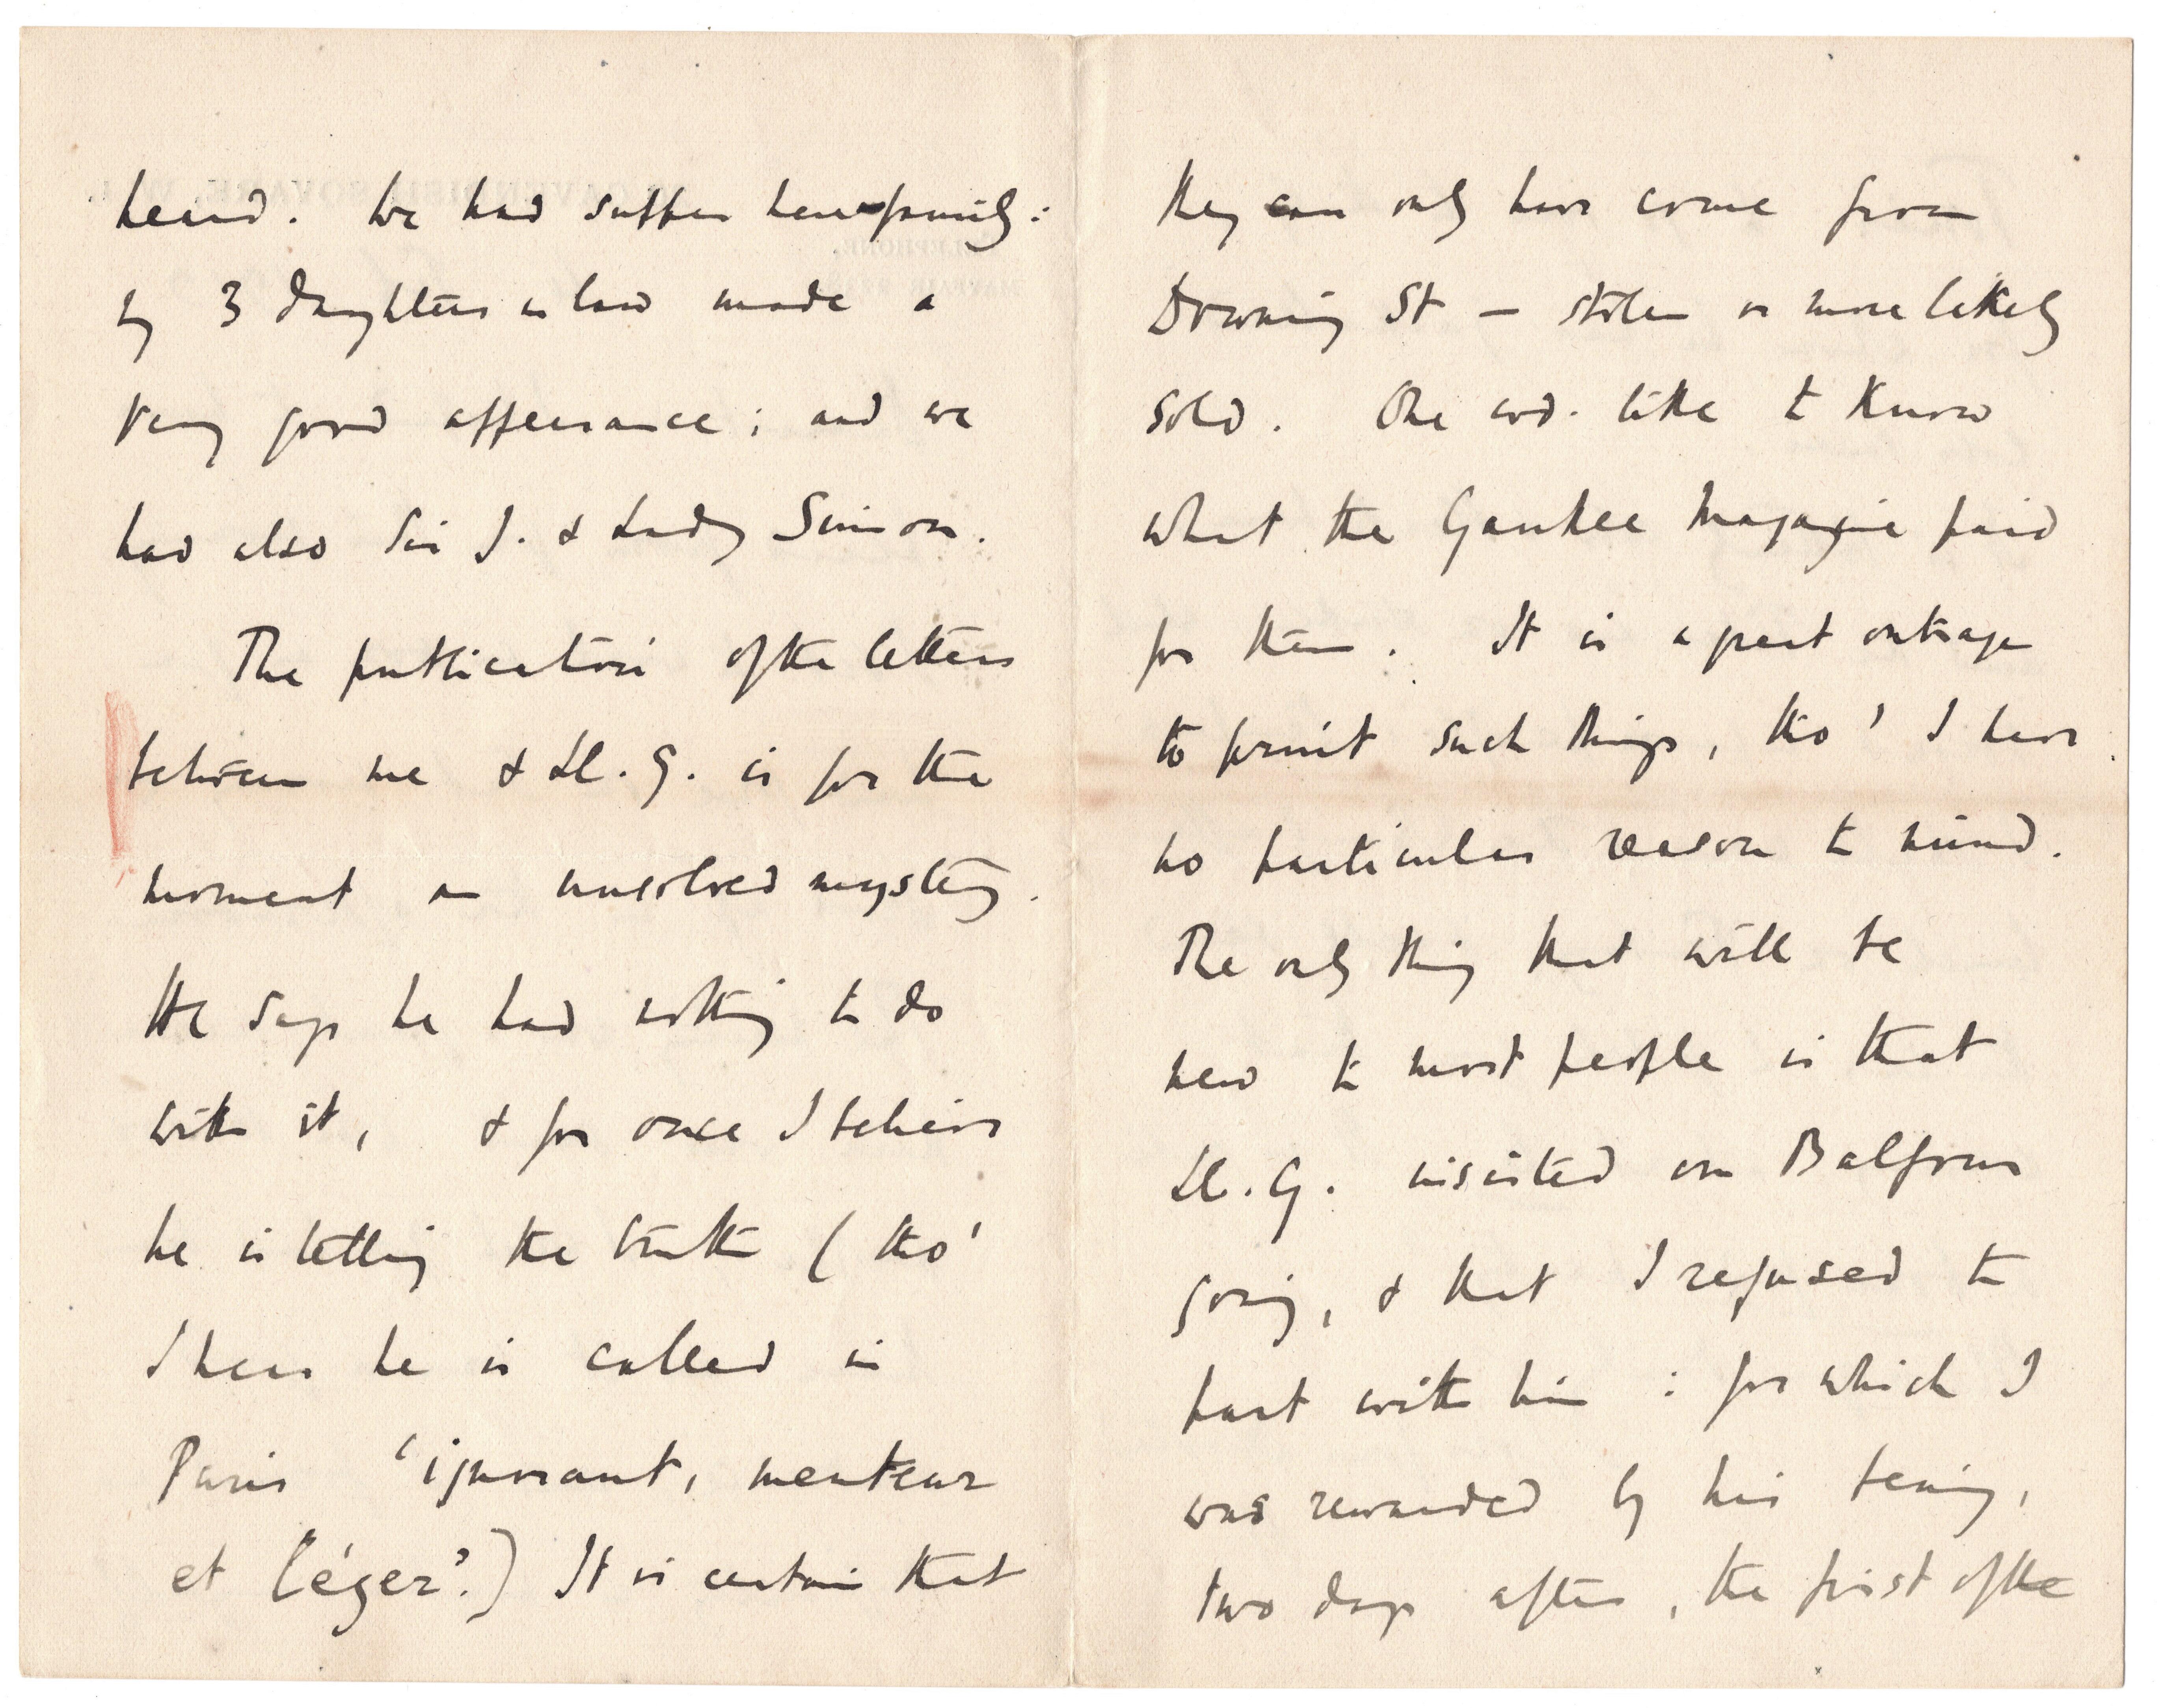 heard. We had supper here family:
my 3 daughters in law made a
very good appearance; and we
had also Sir J. & Lady Simon.
The publication of the letters
between me & Ll. G. is for the
moment an unsolved mystery.
He says he had nothing to do
with it, & for once I believe
he is telling the truth (tho'
I hear he is called in
Paris 'ignorant, menteur
et léger'.) It is certain that
they can only have come from
Downing St – stolen or more likely
sold. One wd. like to know
what the Yankee Magazine paid
for them. It is a great outrage
to permit such things, tho' I have
no particular reason to mind.
The only thing that will be
new to most people is that
Ll. G. insisted on Balfour
going, & that I refused to
part with him: for which I
was rewarded by his being,
two days after, the first of the